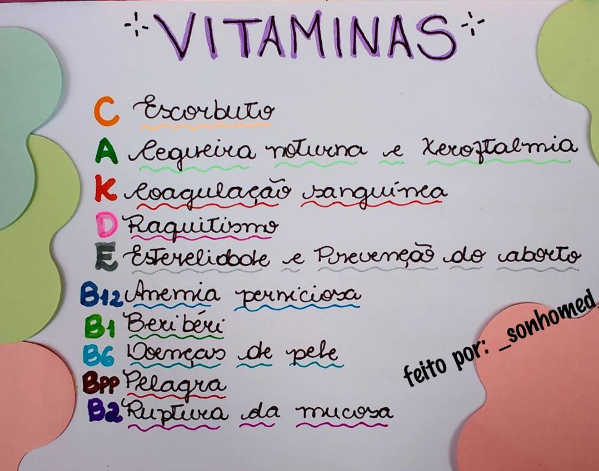 VITAMINAS
C Escorbuto
A Cegueira noturna e Xeroftalmia
K Coagulação sanguínea
D Raquitismo
E Esterelidade e Prevenção do aborto
B12 Anemia perniciosa
B1 Beribéri
B6 Doenças de pele
BPP Pelagra
B2 Ruptura da mucosa
feito por: _sonhomed_